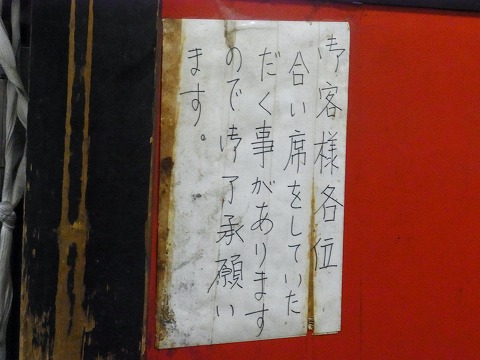 御客様各位
合い席をしていた
だく事があります
ので御了承願い
ます。